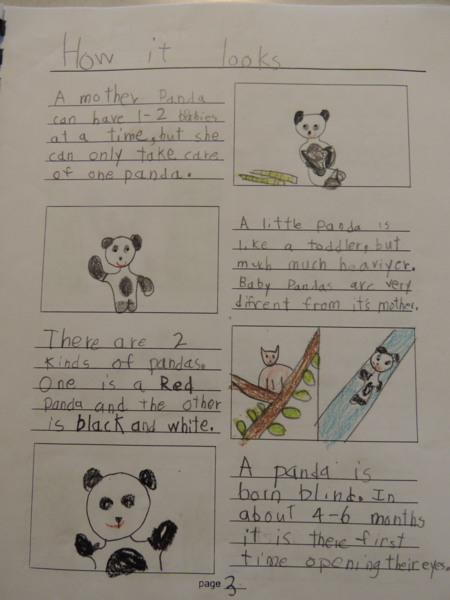 How it looks
A mother Panda
can have 1-2 babies
at a time, but she
can only take care
of one panda.
A little Panda is
like a toddler, but
much much heaviyer.
Baby Pandas are very
difrent from it's mother.
There are 2
kinds of pandas.
One is a Red
Panda and the other
is black and white.
A panda is
born blind. In
about 4-6 months
it is there first
time opening their eyes.
page 3